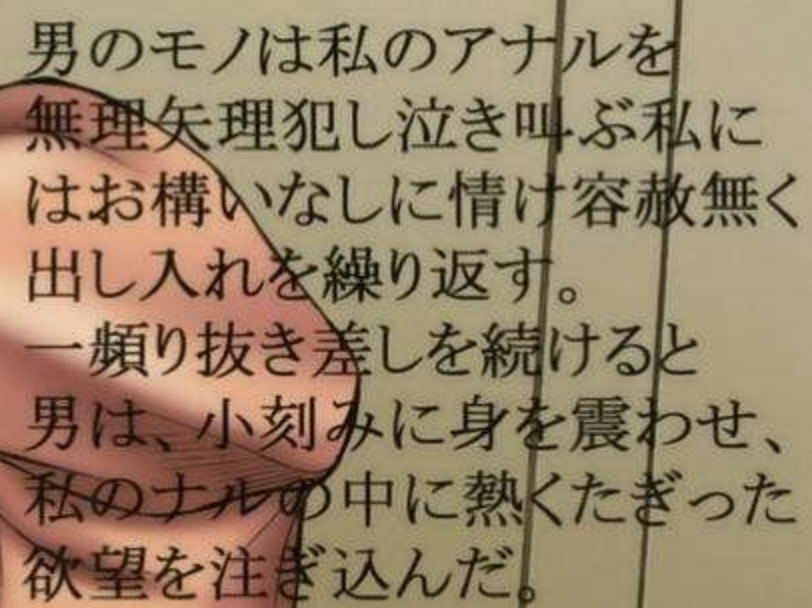 男のモノは私のアナルを
無理矢理犯し泣き叫ぶ私に
はお構いなしに情け容赦無く
出し入れを繰り返す。
一頻り抜き差しを続けると
男は、小刻みに身を震わせ、
私のナルの中に熱くたぎった
欲望を注ぎ込んだ。